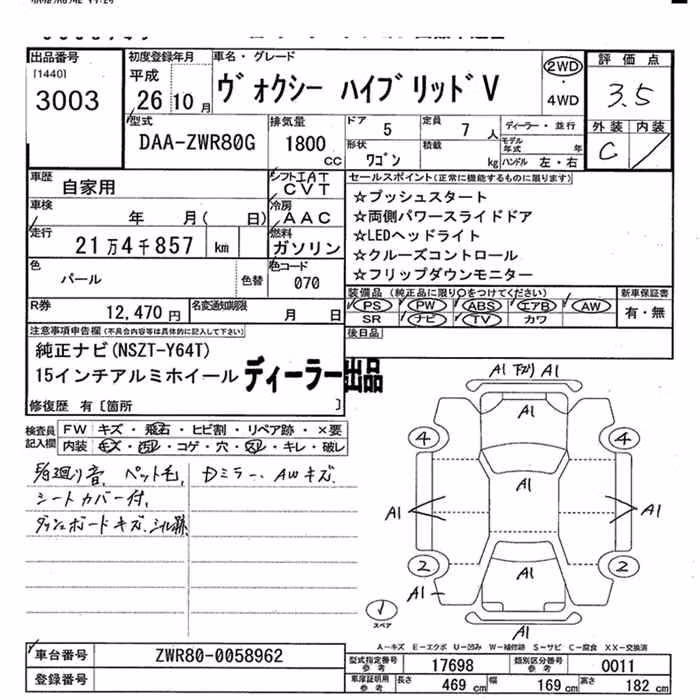 出品番号
[1440]
3003
初度登録年月
平成
26年10月
車名・グレード
ヴォクシー ハイブリッドV
2WD
4WD
評価点
3.5
外装 内装
C
型式
DAA-ZWR80G
排気量
1800
cc
ドア 5
定員 7 人
形状 ワゴン
積載 kg
ディーラー・並行
モデル年式 年
ハンドル 左・右
車歴
自家用
シフト IAT
CVT
車検 年 月( 日)
冷房
AAC
走行
21万4千857 km
燃料
ガソリン
色
パール
色替
色コード
070
セールスポイント(正常に機能するものに限ります)
☆プッシュスタート
☆両側パワースライドドア
☆LEDヘッドライト
☆クルーズコントロール
☆フリップダウンモニター
R券
12,470 円
名変通知期限
月 日
装備品 (純正品に限り○をつけてください)
PS PW ABS エアB AW
SR ナビ TV カワ
新車保証書
有・無
後日品
注意事項申告欄(不具合内容等は具体的に記入して下さい)
純正ナビ(NSZT-Y64T)
15インチアルミホイール
ディーラー出品
修復歴 有〔箇所 〕
検査員
記入欄
FW キズ・飛石・ヒビ割・リペア跡・×要
内装 キズ・汚れ・コゲ・穴・スレ・キレ・破レ
ペット毛,
Dミラー、AWキズ.
シートカバー付,
ダッシュボードキズ、シール跡
A1 下カリ A1
A1
4
4
A1
A1
A1
2
2
A1
A1
A1
スペア
A－キズ E－エクボ U－凹み W－補修跡 S－サビ C－腐食 XX－交換済
車台番号
ZWR80-0058962
登録番号
型式指定番号
参考
17698
類別区分番号
参考
0011
車庫証明用
参考
長さ 469 cm
幅 169 cm
高さ 182 cm